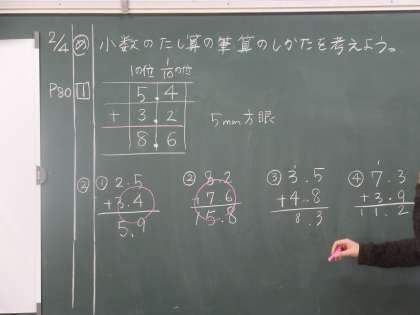 2/4 め 小数のたし算の筆算のしかたを考えよう。
1の位 1/10の位
P80 1 5.4
+ 3.2
8.6
5mm方眼
② ① 2.5
+3.4
5.9
② 8.2
+7.6
15.8
③ 3.5
+4.8
8.3
④ 7.3
+3.9
11.2